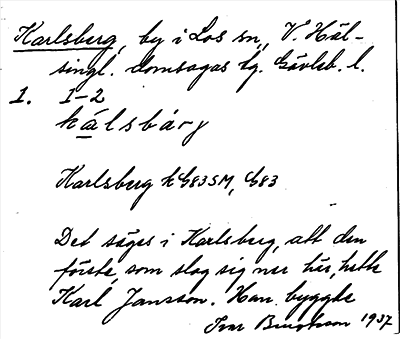 Karlsberg, by i Los sn., V. Häl-
singl. domsagas tg. Gävleb. l.
1. 1-2
kálsbárj
Karlsberg k G83SM, G83
Det säges i Karlsberg, att den
förste, som slog sig ner här, hette
Karl Jansson. Han byggde
Ivar 1937